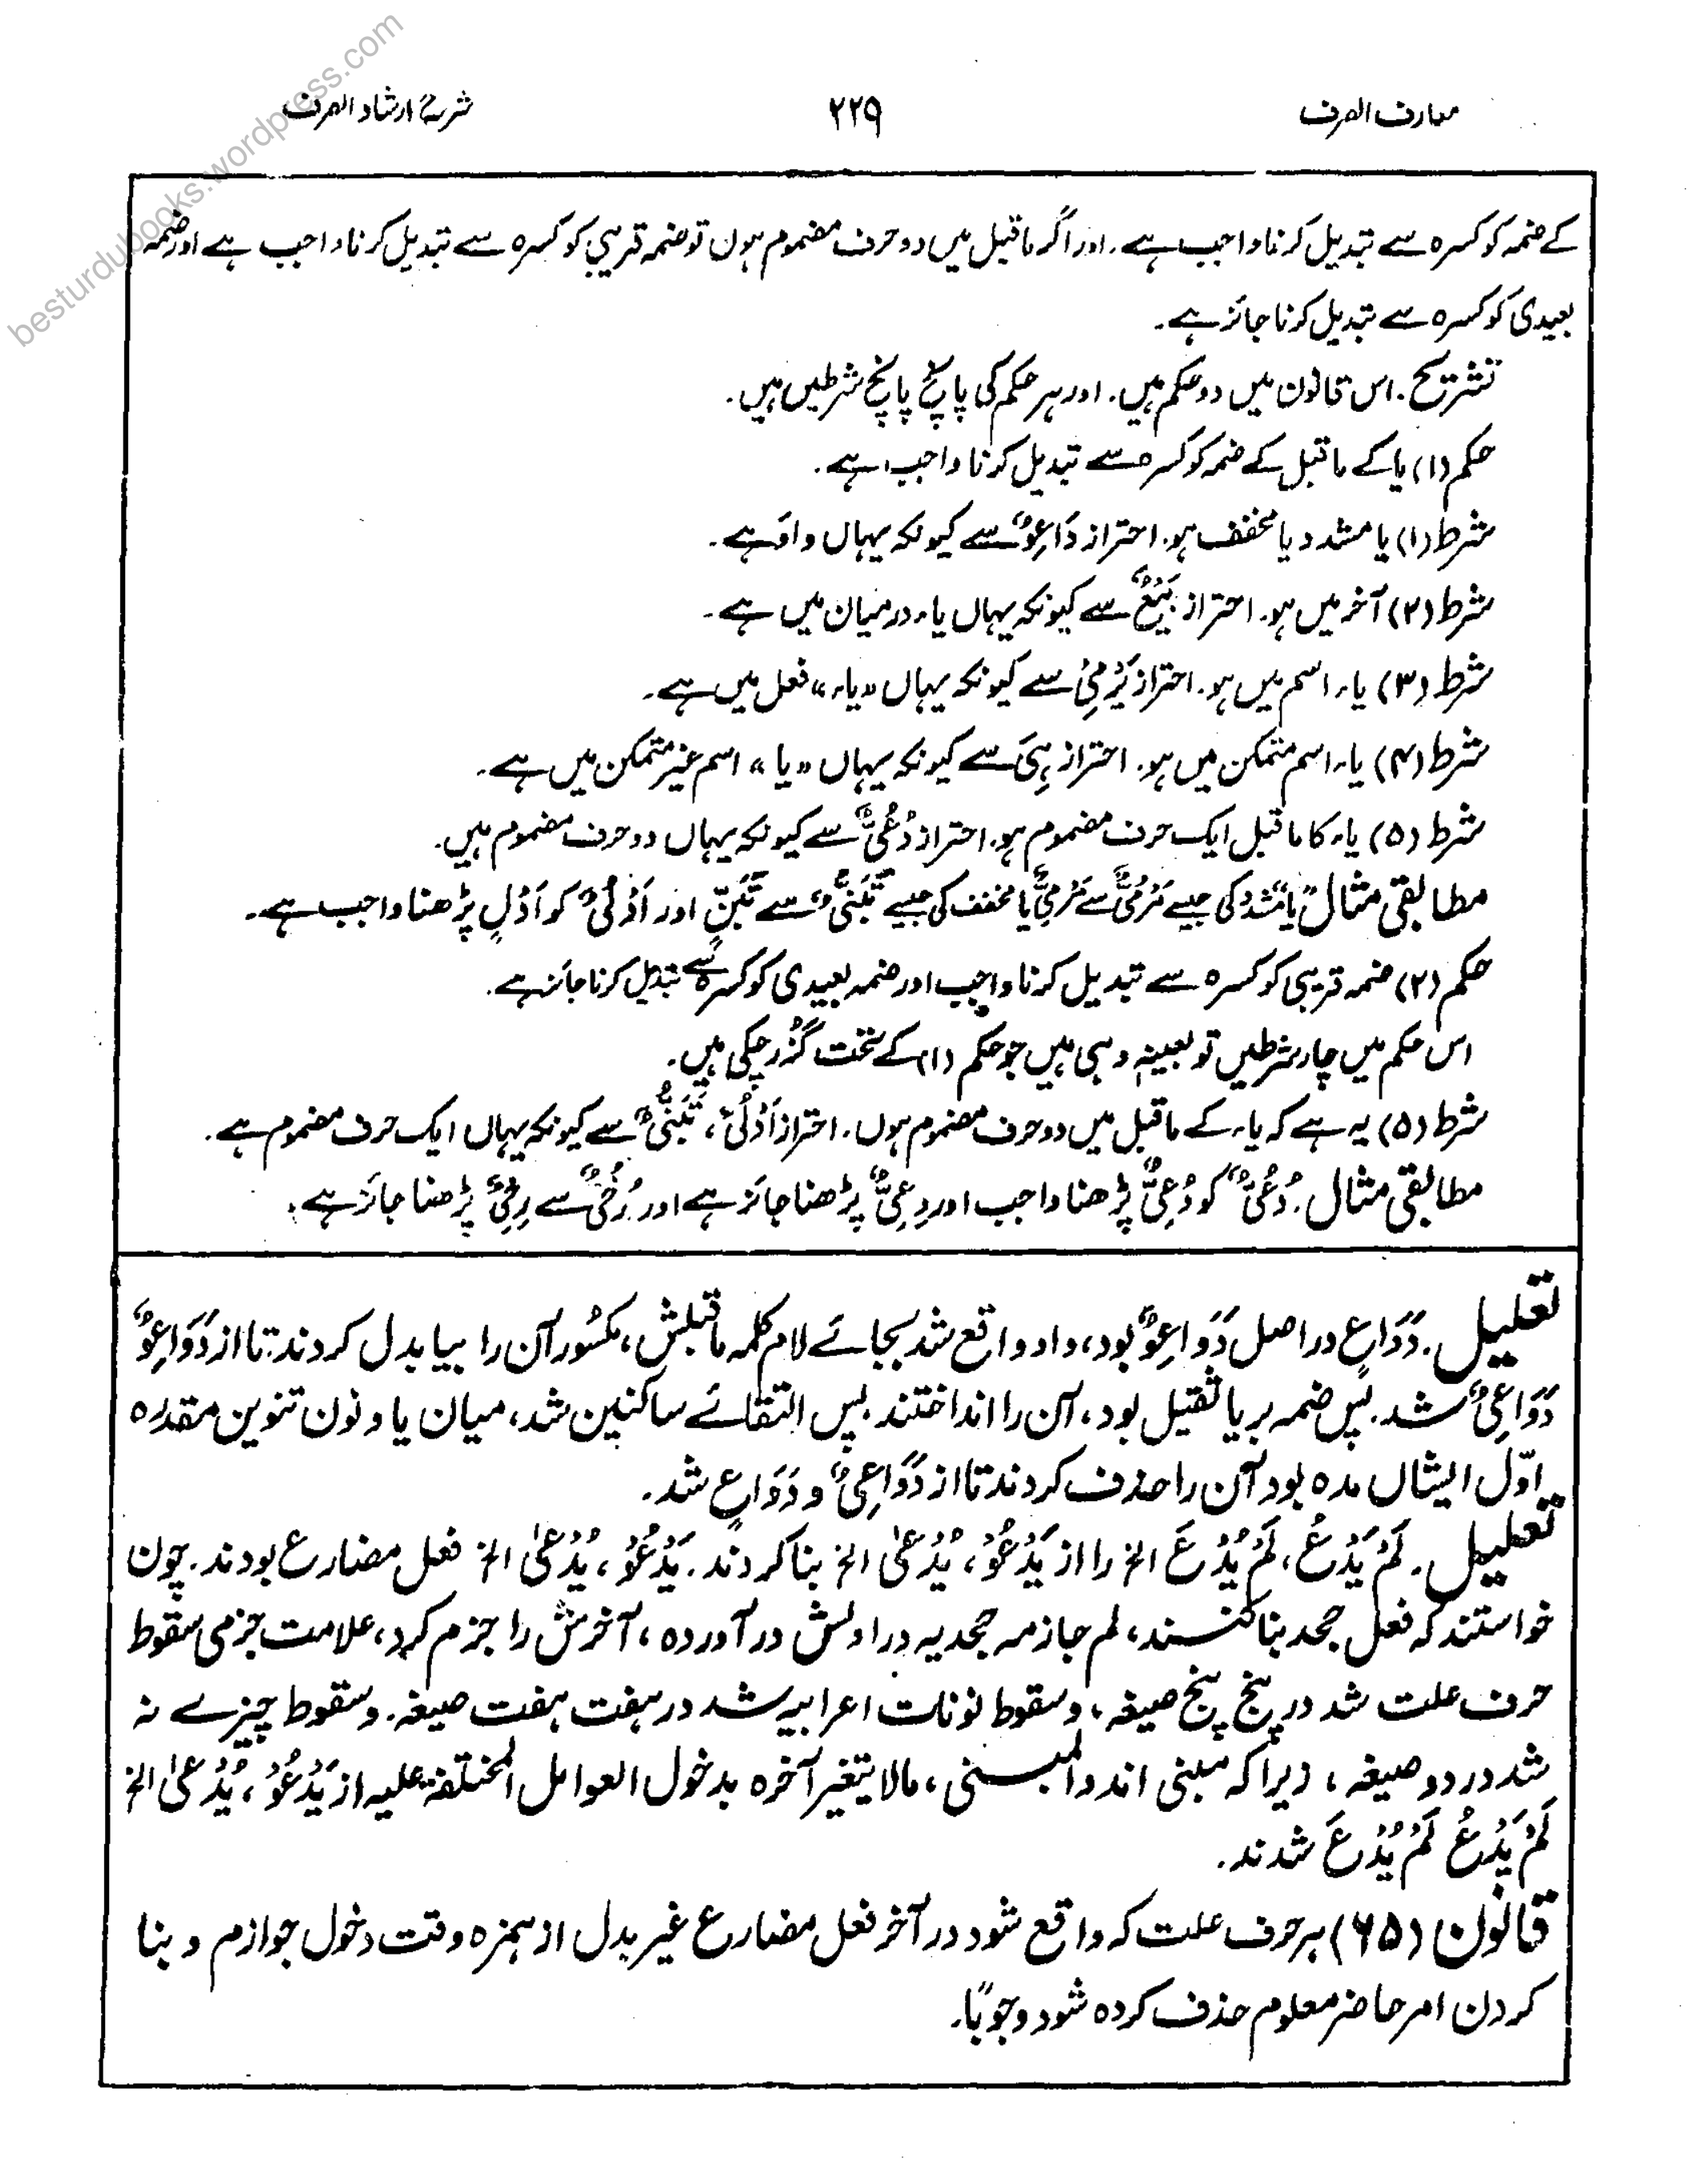 معارف الصرف
۲۲۹
شرح ارشاد الصرف
besturdubooks.wordpress.com
کے ضمہ کو کسرہ سے تبدیل کرنا واجب ہے۔ اور اگر ماقبل میں دو حرف مضموم ہوں تو ضمہ قریبی کو کسرہ سے تبدیل کرنا واجب ہے اور ضمہ
بعیدی کو کسرہ سے تبدیل کرنا جائز ہے۔
تشریح۔ اس قانون میں دو حکم ہیں۔ اور ہر حکم کی پانچ پانچ شرطیں ہیں۔
حکم (۱) یا کے ماقبل کے ضمہ کو کسرہ سے تبدیل کرنا واجب ہے۔
شرط (۱) یا مشدد یا مخفف ہو۔ احتراز دَاعِوٌ سے کیونکہ یہاں واؤ ہے۔
شرط (۲) آخر میں ہو۔ احتراز بَیْعٌ سے کیونکہ یہاں یاء درمیان میں ہے۔
شرط (۳) یاء اسم میں ہو۔ احتراز یَرْمِیُ سے کیونکہ یہاں «یاء» فعل میں ہے۔
شرط (۴) یاء اسم متمکن میں ہو۔ احتراز ہِیَ سے کیونکہ یہاں «یا» اسم غیر متمکن میں ہے۔
شرط (۵) یاء کا ماقبل ایک حرف مضموم ہو۔ احتراز دُعُیٌّ سے کیونکہ یہاں دو حرف مضموم ہیں۔
مطابقی مثال یا مشدد کی جیسے مَرْمُیٌّ سے مَرْمِیٌّ یا مخفف کی جیسے تَبَنُّیٌ سے تَبَنٍّ اور اَدْلُیٌ کو اَدْلٍ پڑھنا واجب ہے۔
حکم (۲) ضمہ قریبی کو کسرہ سے تبدیل کرنا واجب اور ضمہ بعیدی کو کسرہ سے تبدیل کرنا جائز ہے۔
اس حکم میں چار شرطیں تو بعینہٖ وہی ہیں جو حکم (۱) کے تحت گزر چکی ہیں۔
شرط (۵) یہ ہے کہ یاء کے ماقبل میں دو حرف مضموم ہوں۔ احتراز اَدْلُیٌ، تَبَنُّیٌ سے کیونکہ یہاں ایک حرف مضموم ہے۔
مطابقی مثال۔ دُعُیٌّ کو دُعِیٌّ پڑھنا واجب اور دِعِیٌّ پڑھنا جائز ہے اور سے پڑھنا جائز ہے۔
تعلیل۔ دَوَاعٍ دراصل دَوَاعِوٌ بود، واو واقع شد بجائے لام کلمہ ماقبلش، مکسور آن را بیا بدل کردند تا از دَوَاعِوٌ
دَوَاعِیٌ شد۔ پس ضمہ بر یا ثقیل بود، آن را انداختند۔ پس التقائے ساکنین شد، میان یا و نون تنوین مقدرہ
اوّل ایشاں مدہ بود آن را حذف کردند تا از دَوَاعِیٌ و دَوَاعٍ شد۔
تعلیل۔ لَمْ یَدْعُ، لَمْ یُدْعَ الخ را از یَدْعُوْ، یُدْعٰی الخ بنا کردند۔ یَدْعُوْ، یُدْعٰی الخ فعل مضارع بودند۔ چون
خواستند کہ فعل جحد بنا کنند، لم جازمہ جحدیہ در اولش در آوردہ، آخرش را جزم کرد، علامت جزمی سقوط
حرف علت شد در پنج پنج صیغہ، و سقوط نونات اعرابیہ شد در ہفت ہفت صیغہ۔ و سقوط چیزے نہ
شد در دو صیغہ، زیرا کہ مبنی اند و المبنی، مالا یتغیر آخرہ بدخول العوامل المختلفۃ علیہ از یَدْعُوْ، یُدْعٰی الخ
لَمْ یَدْعُ لَمْ یُدْعَ شدند۔
قانون (۶۵) ہر حرف علت کہ واقع شود در آخر فعل مضارع غیر بدل از ہمزہ وقت دخول جوازم و بنا
کردن امر حاضر معلوم حذف کردہ شود وجوبًا۔